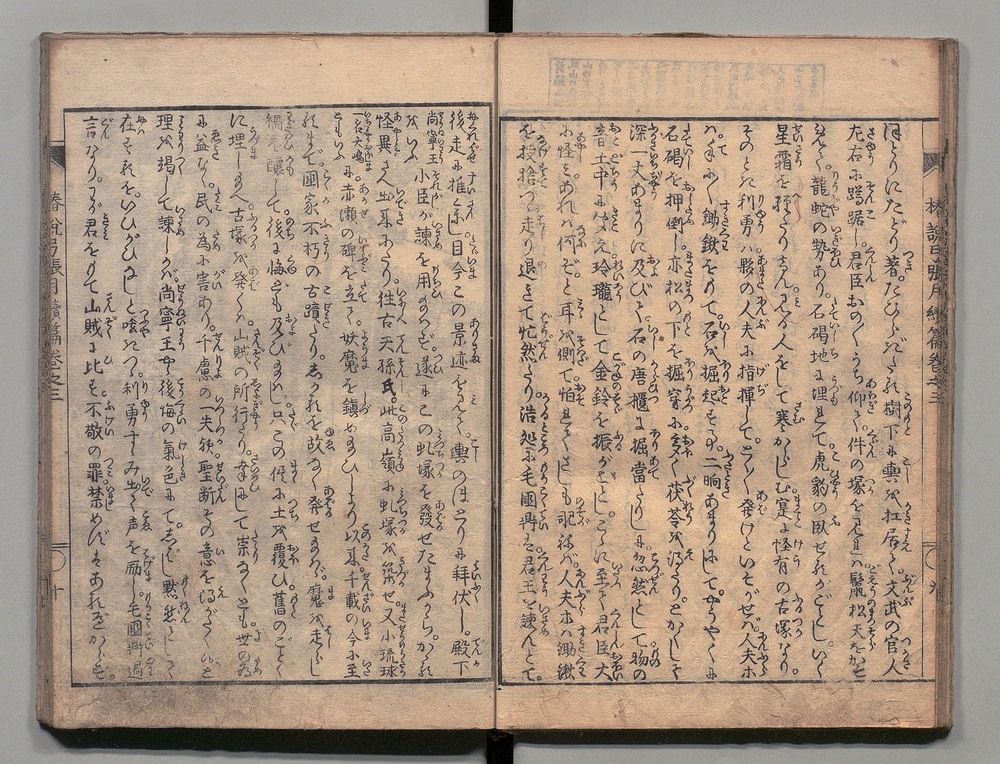 ほとりにたどり着。たひらなる樹下に輿を扛居て。文武の官人
左右に蹲踞し。君臣おの〳〵うち仰ぎて。件の塚を見るに。鬣松天をかすめ
龍蛇の勢あり。石碣地に埋れて。虎豹の臥せるがごとし。いく
星霜を經たりけん。見る人をして寒からしむ。寔に怪有の古塚なり。
そのとき利勇は。夥の人夫に指揮して。とく〳〵發けといそがせば。人夫ホ
手に〳〵鋤鍬をもて。石を掘起す事。二晌あまりにして。やうやくに
石碣を押倒し。亦松の下を掘穿に。多く茯苓を得たり。とかくして
深一丈あまりに及びて。石の唐櫃に掘當たりしに。忽然として物の
音土中に聞え。玲瓏として金鈴を振がごとし。こゝに至りて君臣大
に怪みあれは何ぞと。耳を側て怕るゝさしも
を投捨つゝ走り退きて忙然たり。浩処に毛國鼎は君王を諫んとて。
後走に推參し。目今この景迹を見て。輿のほとりに拜伏し。殿下
尚寧王をいふ小臣が諫を用ゐ給はず。遂にこの虬塚を發せたまふから。かゝる
怪異さへ出來にたり。往古天孫氏。此高嶺に虬塚を築せ。又小琉球
一名大嶋ともいふに赤瀬の碑を立て。妖魔を鎭めたまひしより以來。千載の今に至
るまで。國家不朽の古蹟たり。しかるを故なく發せ給はゞ。魔を走らし
禍を釀して。後に悔とも及びますまじ。只この儘に土を覆ひ。舊のごとく
に埋しめ給へ。古塚を發くは。山賊の所行なり。幸にして祟なくとも。世の為
に益なく。民の為に害あり。千慮の一失歟。聖断その意を得がたく候と
理を竭して諫しかば。尚寧王や後悔の氣色にて。しばし黙然として
在せしを。いひがひなしと呟きつゝ。利勇すゝみ出て声を勵し。毛國鼎過
言なり。わが君をもて山賊に比す。不敬の罪禁めんずもあれざかしくも。
椿説弓張月續篇卷之三
九
椿説弓張月續篇卷之三
十